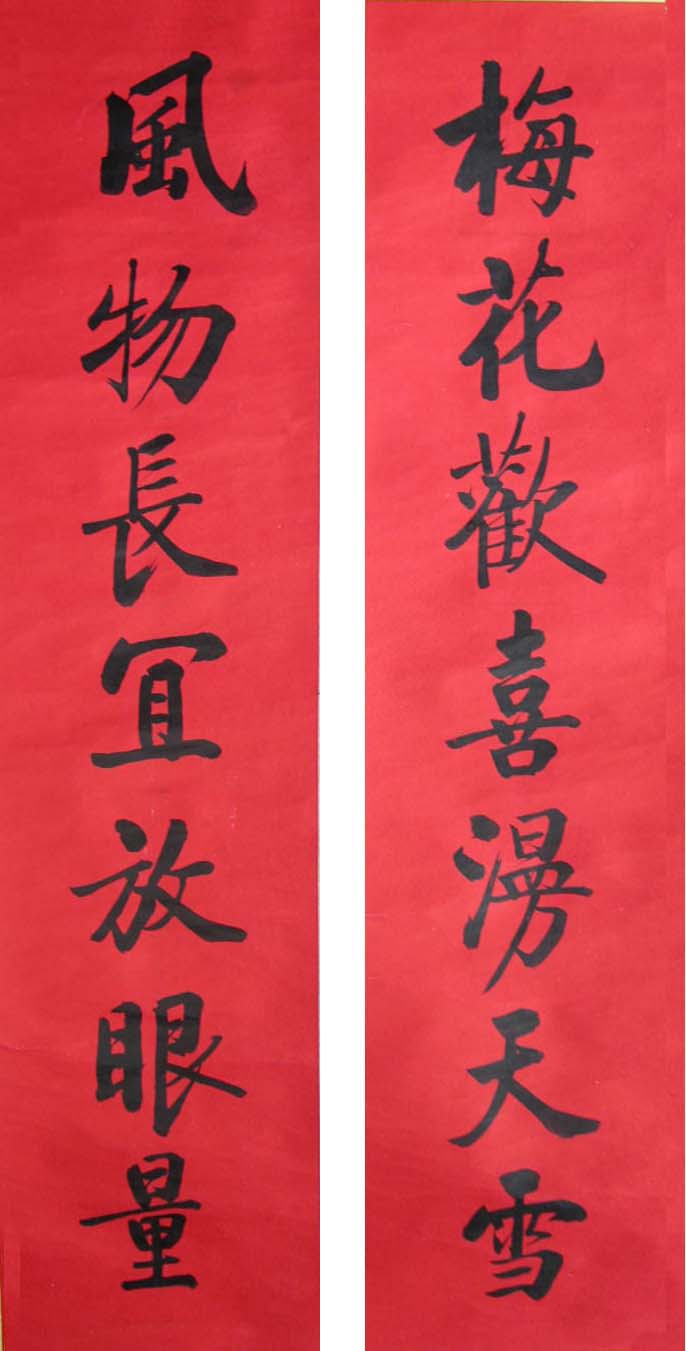 梅花歡喜漫天雪
風物長宜放眼量